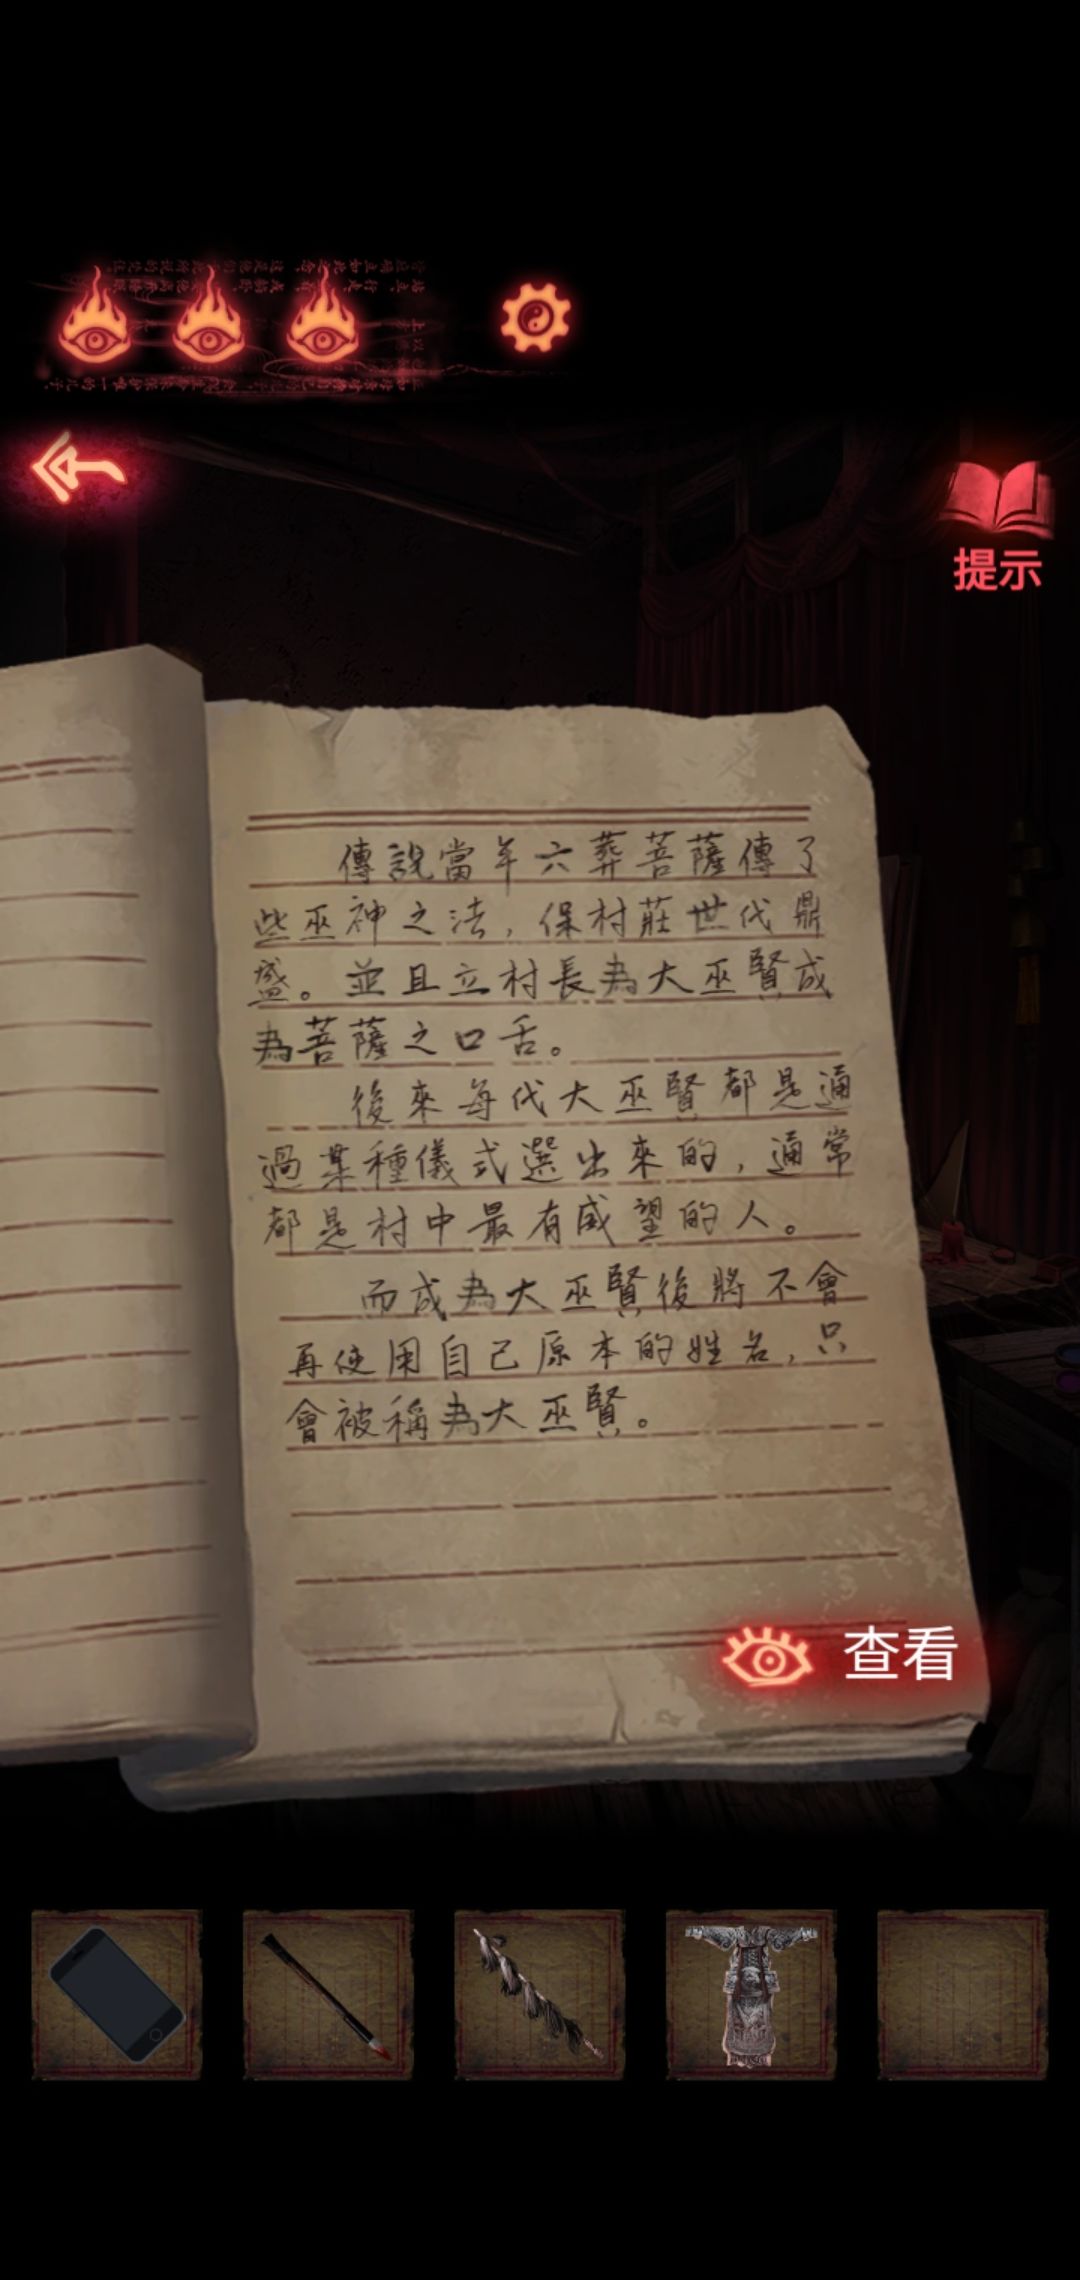 提示
傳說當年六葬菩薩傳了
些巫神之法，保村莊世代鼎
盛。並且立村長為大巫賢成
為菩薩之口舌。
後來每代大巫賢都是通
過某種儀式選出來的，通常
都是村中最有威望的人。
而成為大巫賢後將不會
再使用自己原本的姓名，只
會被稱為大巫賢。
查看